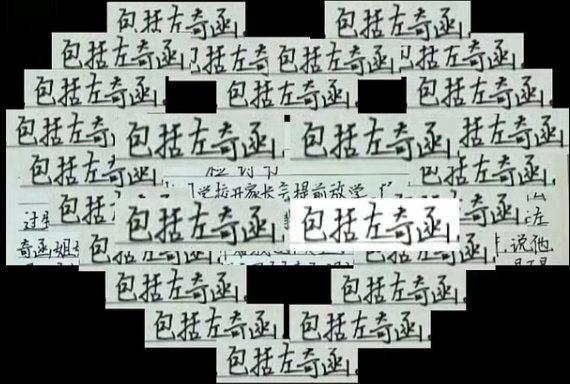 包括左奇函. 包括左奇函.
包括左奇函. 括左奇函 包括左奇函. 括左奇函.
包括左奇函. 包括左奇函. 包括左奇函.
包括左奇 包括左奇函. 包括左奇函. 括左奇函.
包括左奇函. 包括左奇函.
学校开家长会提前放学
包括 包括左奇函. 包括左奇函.
过
奇函姐 说他
包括左奇函. 包括左奇函.
包括左奇函. 包括左奇函.
包括左奇函. 包括左奇函.
包括左奇函.